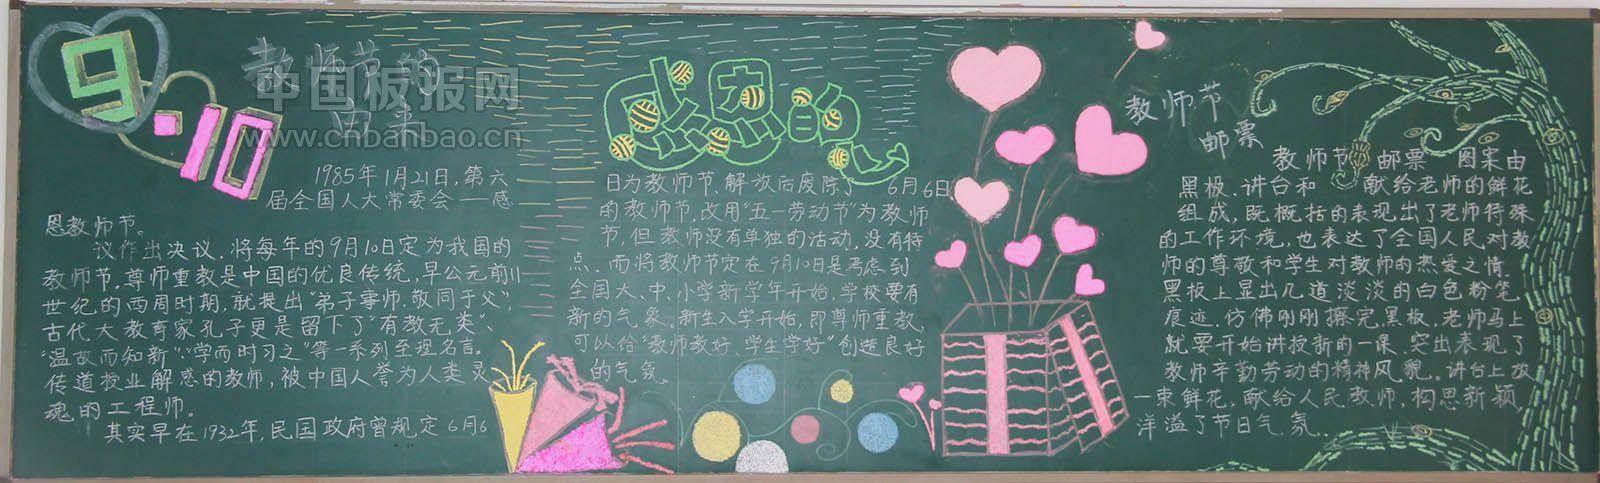 9·10
教师节的
由来
中国板报网
www.cnbanbao.cn
1985年1月21日,第六
届全国人大常委会——感
恩教师节。
议作出决议,将每年的9月10日定为我国的
教师节。尊师重教是中国的优良传统,早公元前11
世纪的西周时期,就提出“弟子事师,敬同于父”
古代大教育家孔子更是留下了“有教无类”、
“温故而知新”、“学而时习之”等一系列至理名言。
传道授业解惑的教师,被中国人誉为人类灵
魂的工程师。
其实早在1932年,民国政府曾规定6月6
感恩的心
日为教师节,解放后废除了6月6日
的教师节,改用“五一劳动节”为教师
节,但教师没有单独的活动,没有特
点。而将教师节定在9月10日是考虑到
全国大、中、小学新学年开始,学校要有
新的气象。新生入学开始,即尊师重教,
可以给“教师教好、学生学好”创造良好
的气氛
教师节
邮票
教师节 邮票 图案由
黑板、讲台和 献给老师的鲜花
组成,既概括的表现出了老师特殊
的工作环境,也表达了全国人民对教
师的尊敬和学生对教师的热爱之情.
黑板上显出几道淡淡的白色粉笔
痕迹,仿佛刚刚擦完黑板,老师马上
就要开始讲授新的一课,突出表现了
教师辛勤劳动的精神风貌。讲台上放
一束鲜花,献给人民教师,构思新颖,
洋溢了节日气氛.